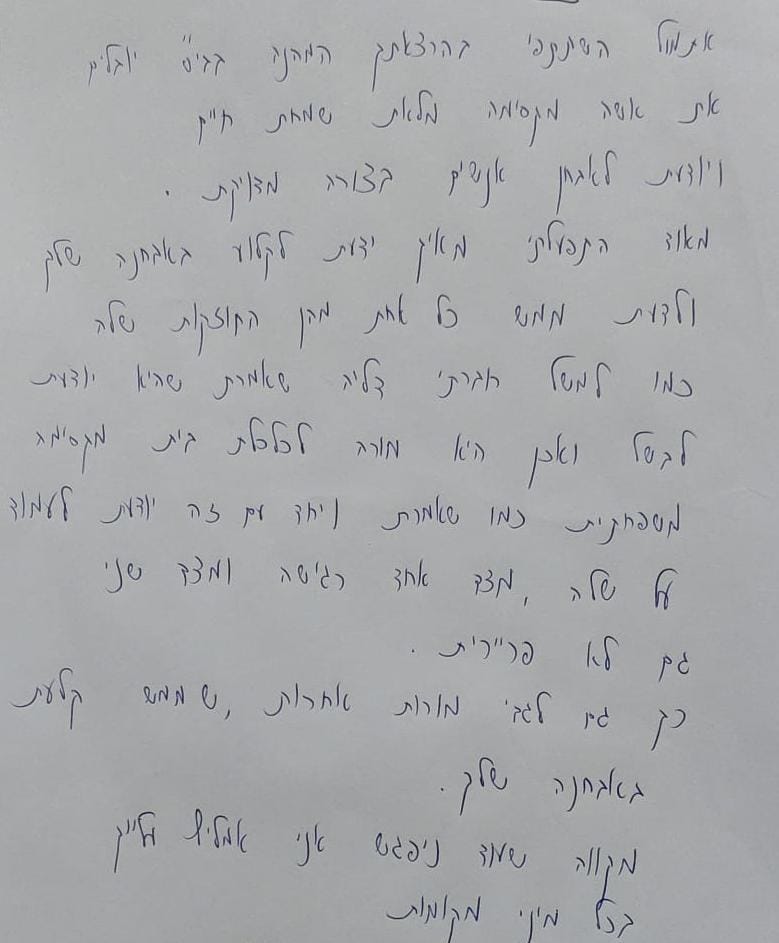 אתמול השתתפתי בהרצאתך המהנה בבי"ס יובלים
את אשה מקסימה מלאת שמחת חיים
ויודעת לאבחן אנשים בצורה מדויקת.
מאוד התפעלתי מאיך ידעת לקלוע באבחנה שלך
ולדעת ממש כל אחת מהן החוזקות שלה
כמו למשל חברתי דליה שאמרת שהיא יודעת
לבשל ואכן היא מורה לכלכלת בית מקסימה
משפחתית כמו שאמרת ויחד עם זה יודעת לעמוד
על שלה, מצד אחד רגישה ומצד שני
גם לא פריירית.
כך גם לגבי מורות אחרות, שממש קלעת
באבחנה שלך.
מקווה שעוד ניפגש אני אמליץ עלייך
בכל מיני מקומות